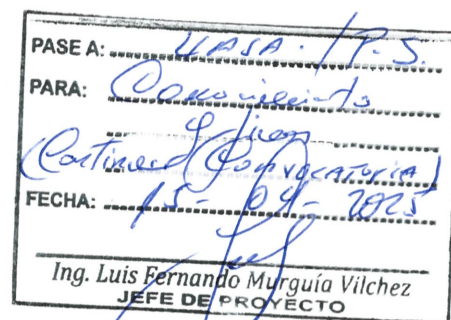 PASE A: UASA. / P.S.
PARA: Conocimiento
y fines
(Continuar Convocatoria)
FECHA: 15-04-2025
Ing. Luis Fernando Murguía Vilchez
JEFE DE PROYECTO